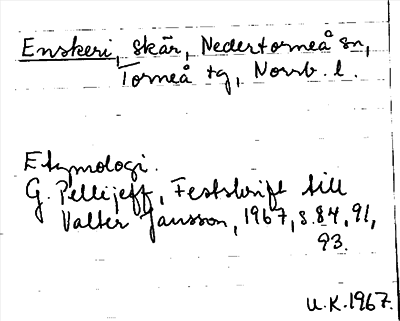 Enskeri, skär, Nedertorneå sn,
Torneå tg, Norrb. l.
Etymologi.
G. Pellijeff, Festskrift till
Valter Jansson, 1967, s. 84, 91,
93.
U.K. 1967.